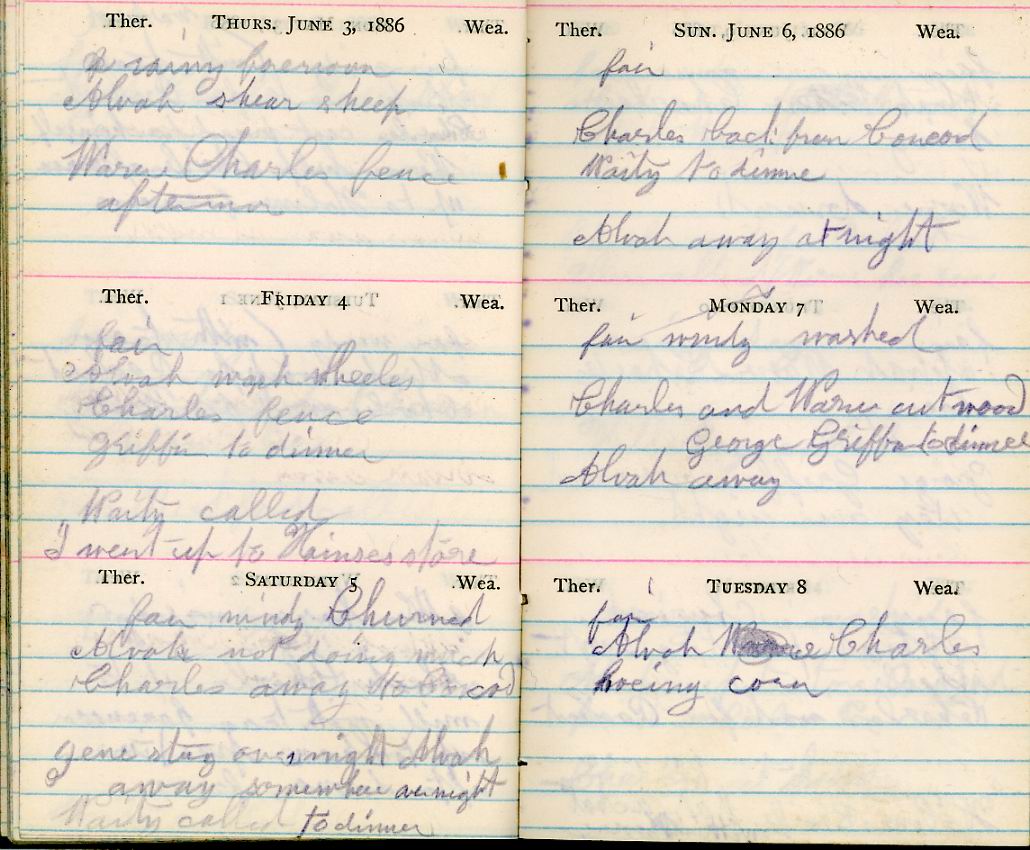 Ther. THURS. JUNE 3, 1886 Wea.
rainy forenoon
Alvah shear sheep
Warne Charles fence
afternoon
Ther. FRIDAY 4 Wea.
fair
Alvah wash wheeles
Charles fence
Griffin to dinner
Waity called
I went up to Hainses store
Ther. SATURDAY 5 Wea.
fair windy Churned
Alvah not doing much
Charles away to Concod
Gene stay over night Alvah
away somewhere overnight
Waity called to dinner
Ther. SUN. JUNE 6, 1886 Wea.
fair
Charles back from Concord
Waity to dinne
Alvah away at night
Ther. MONDAY 7 Wea.
fair windy washed
Charles and Warne cut wood
George Griffin to dinner
Alvah away
Ther. TUESDAY 8 Wea.
fair
Alvah Charles
hoeing corn